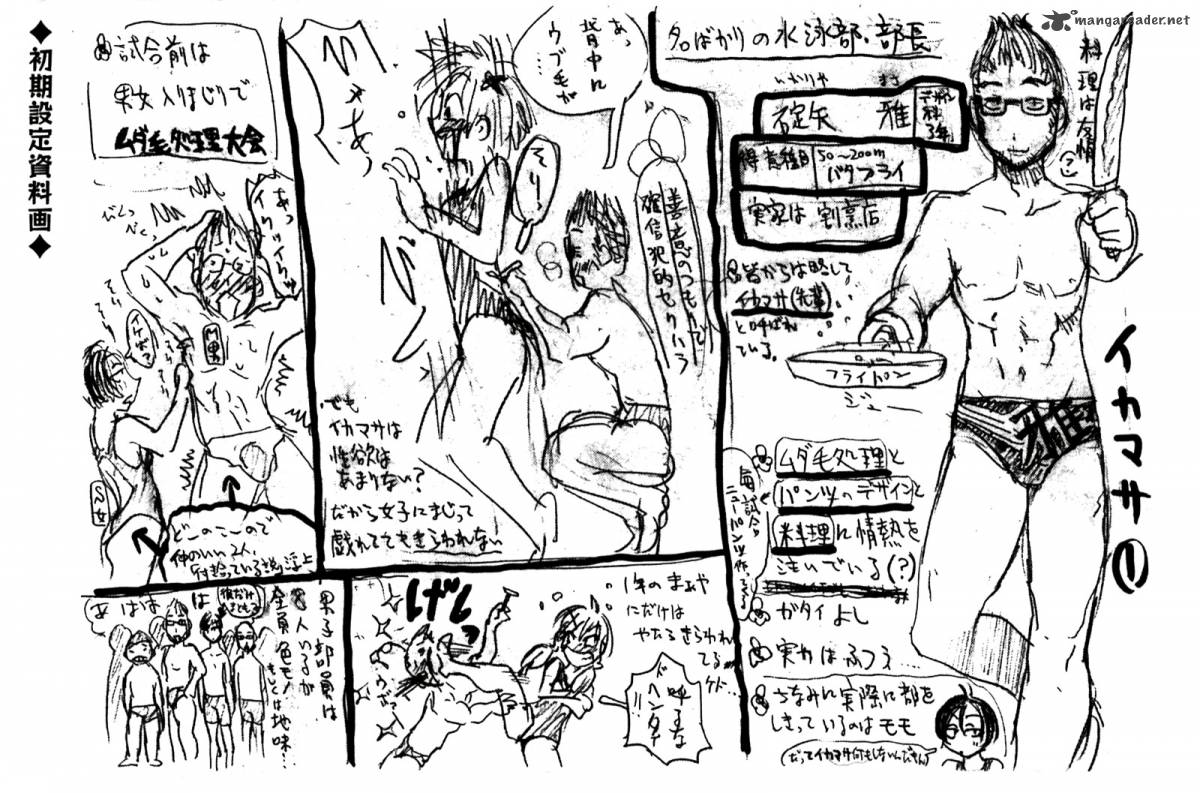 mangareader.net
◆初期設定資料画◆
イカマサ①
料理は友情
名ばかりの水泳部・部長
いかりや まさ
碇矢 雅
デザイン科3年
得意種目
50〜200m
バタフライ
実家は割烹店
皆からは略して
イカマサ(先輩)
と呼ばれ
ている。
フライパン
ジュー
雅
ムダ毛処理と
パンツのデザインと
料理に情熱を
注いでいる(?)
毎試合
ニューパンツ作ってる
ガタイよし
実力はふつう…
ちなみに実際に部を
しきっているのはモモ
あっ
背中に
ウブ毛が
…
そり
善意のつもりで
確信犯的セクハラ
でも
イカマサは
性欲は
あまりない?
だから女子にまじって
戯れててもきらわれない
試合前は
男女入りまじりで
ムダ毛処理大会
あっ
びくっ
びくっ
M男
S女
どこのこので
仲のいい2人、
付き合っている説浮上
1年のまあや
にだけは
やたらきらわれ
てるケド…
げし
男子部員は
全員色モノ
もとは地味…
あははは